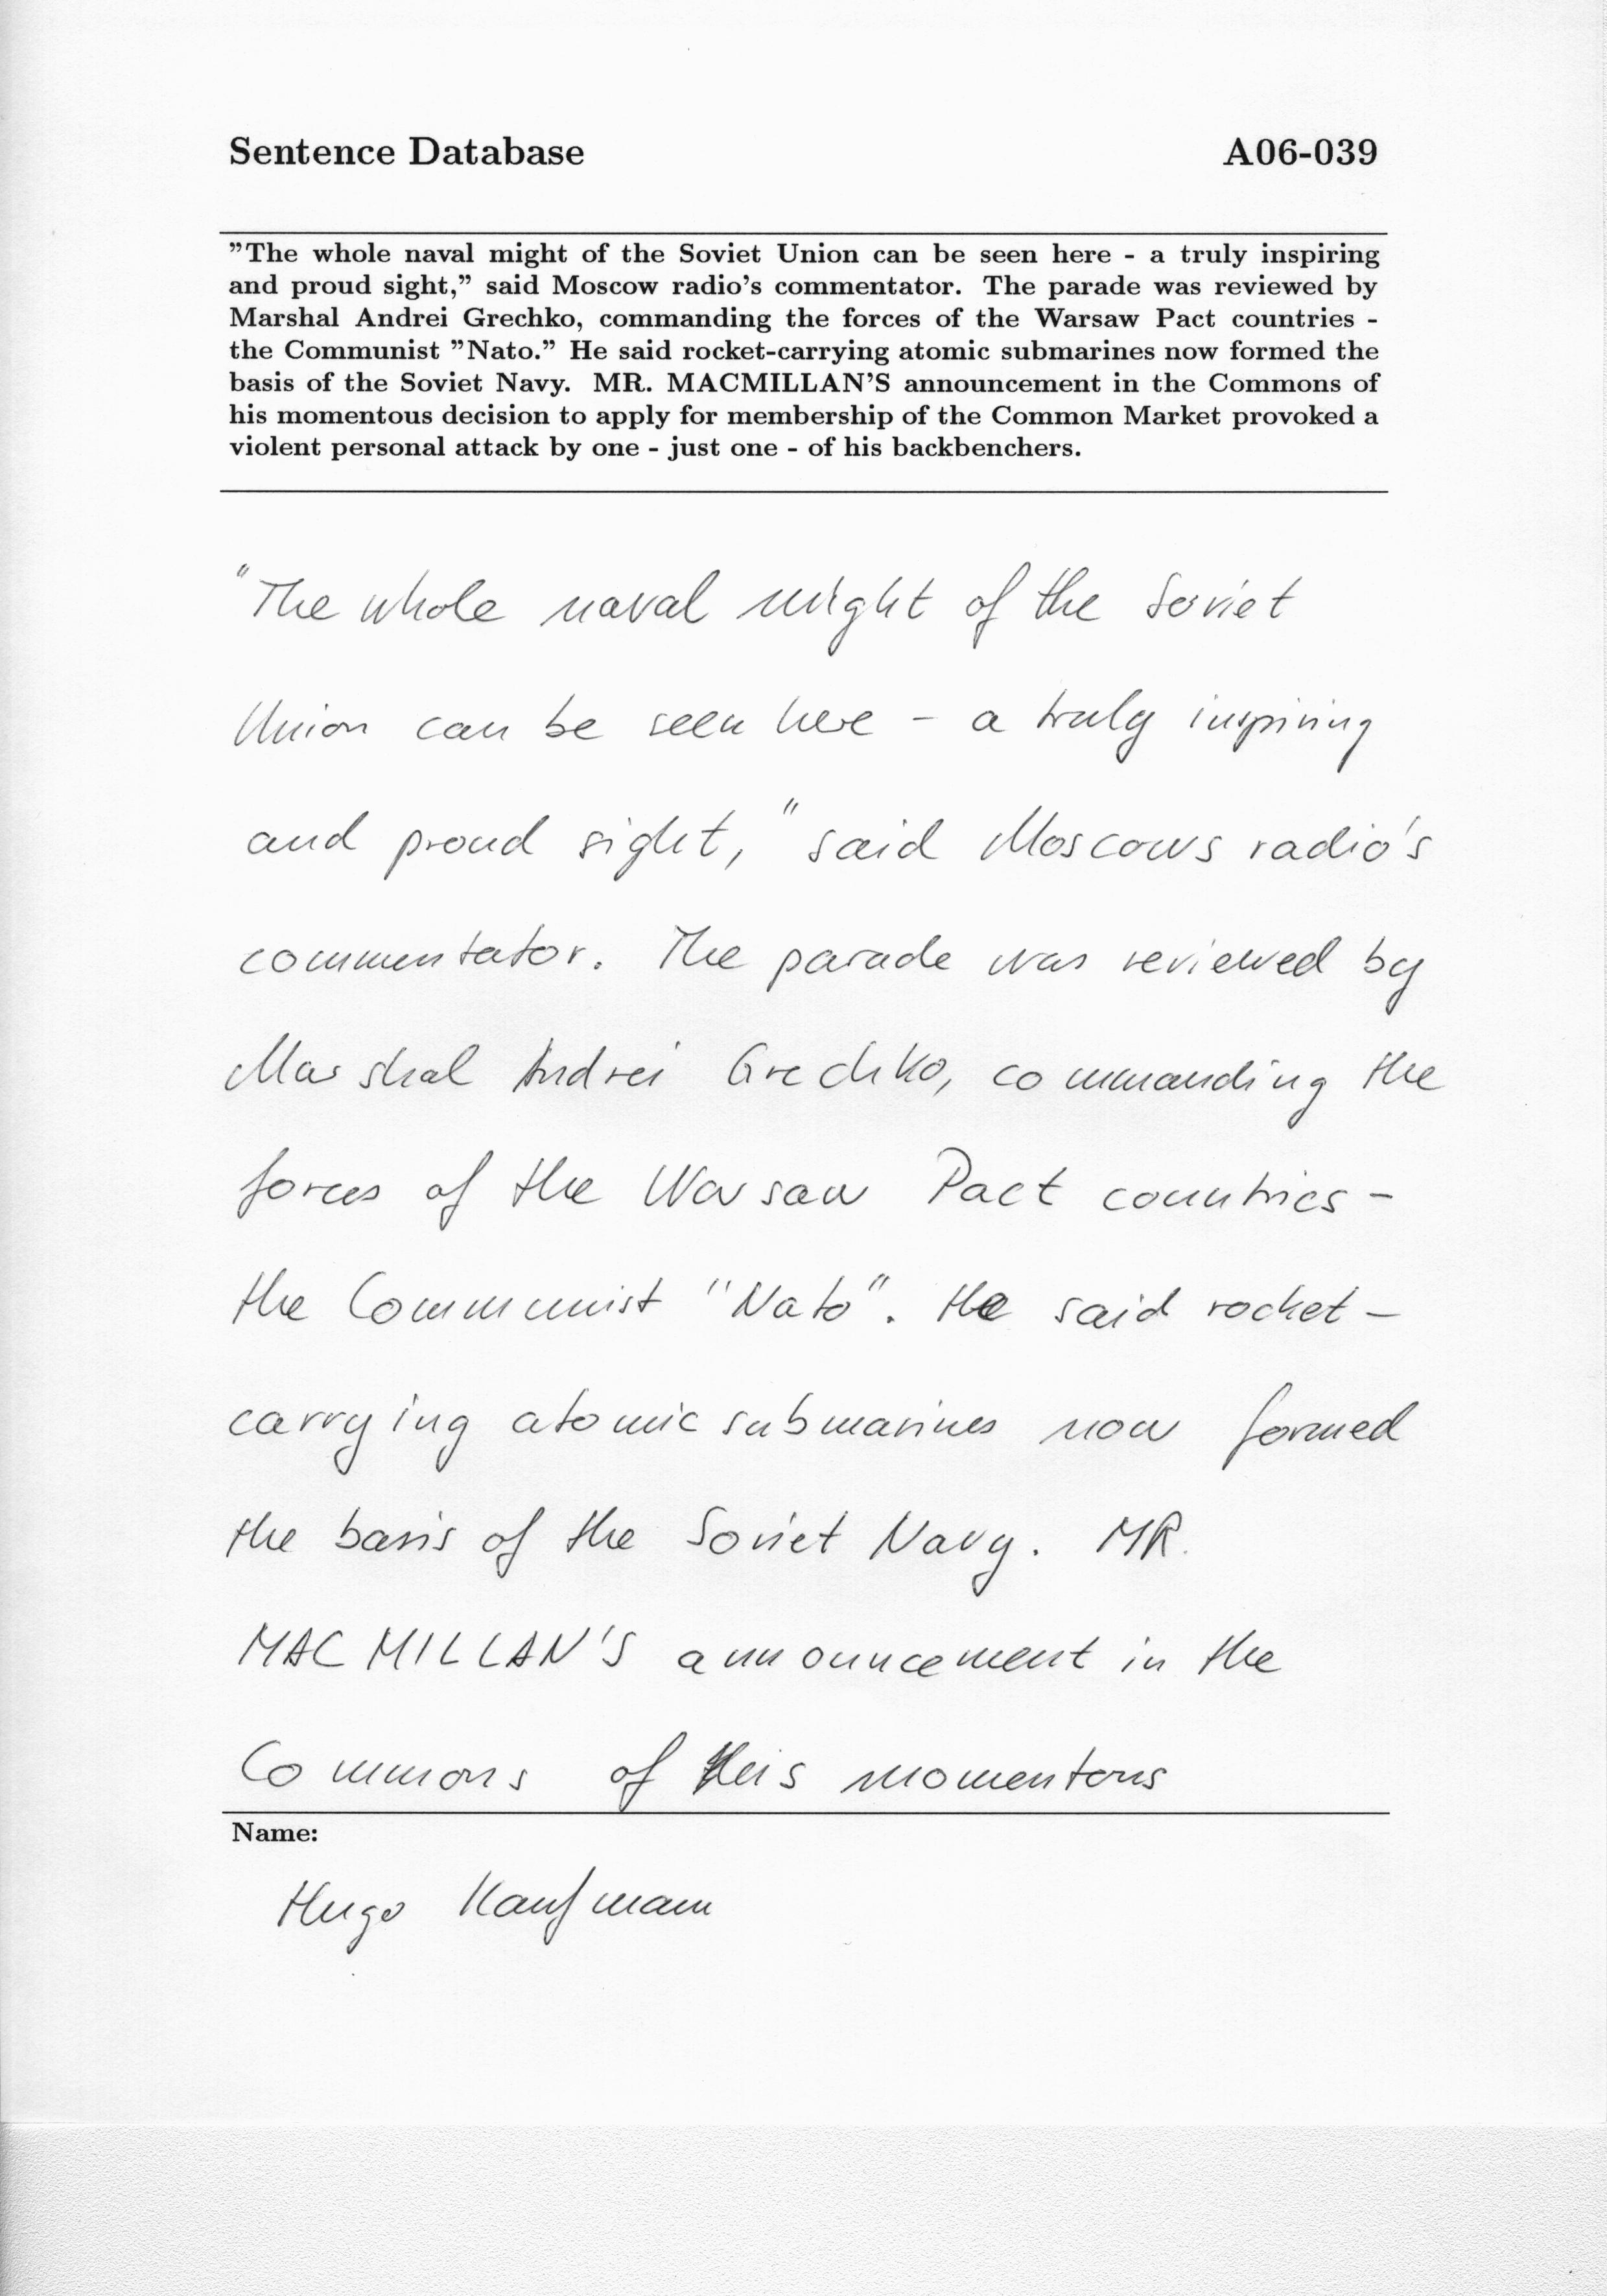 Sentence Database A06-039
"The whole naval might of the Soviet Union can be seen here - a truly inspiring
and proud sight," said Moscow radio's commentator. The parade was reviewed by
Marshal Andrei Grechko, commanding the forces of the Warsaw Pact countries -
the Communist "Nato." He said rocket-carrying atomic submarines now formed the
basis of the Soviet Navy. MR. MACMILLAN'S announcement in the Commons of
his momentous decision to apply for membership of the Common Market provoked a
violent personal attack by one - just one - of his backbenchers.
"The whole naval might of the Soviet
Union can be seen here - a truly inspiring
and proud sight," said Moscows radio's
commentator. The parade was reviewed by
Marshal Andrei Grechko, commanding the
forces of the Warsaw Pact countries -
the Communist "Nato". He said rocket-
carrying atomic submarines now formed
the basis of the Soviet Navy. MR.
MACMILLAN'S announcement in the
Commons of his momentous
Name:
Hugo Kaufmann